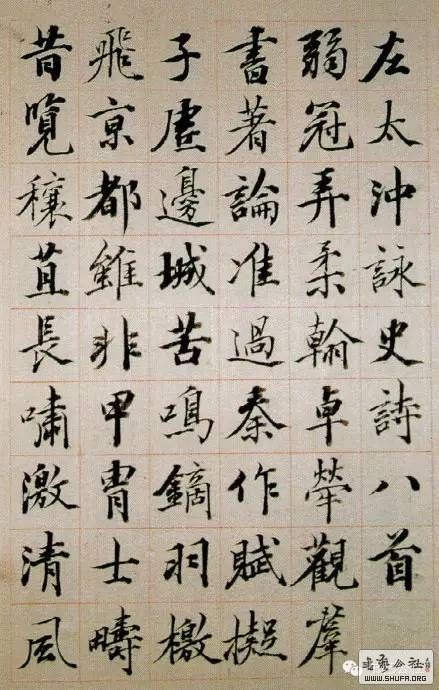 左太沖詠史詩八首
弱冠弄柔翰卓犖觀羣
書著論准過秦作賦擬
子虛邊城苦鳴鏑羽檄
飛京都雖非甲胄士疇
昔覽穰苴長嘯激清風
書藝公社
WWW.SHUFA.ORG